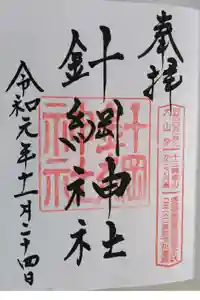 奉拝
針綱神社
針綱
神社
令和元年十一月二十四日